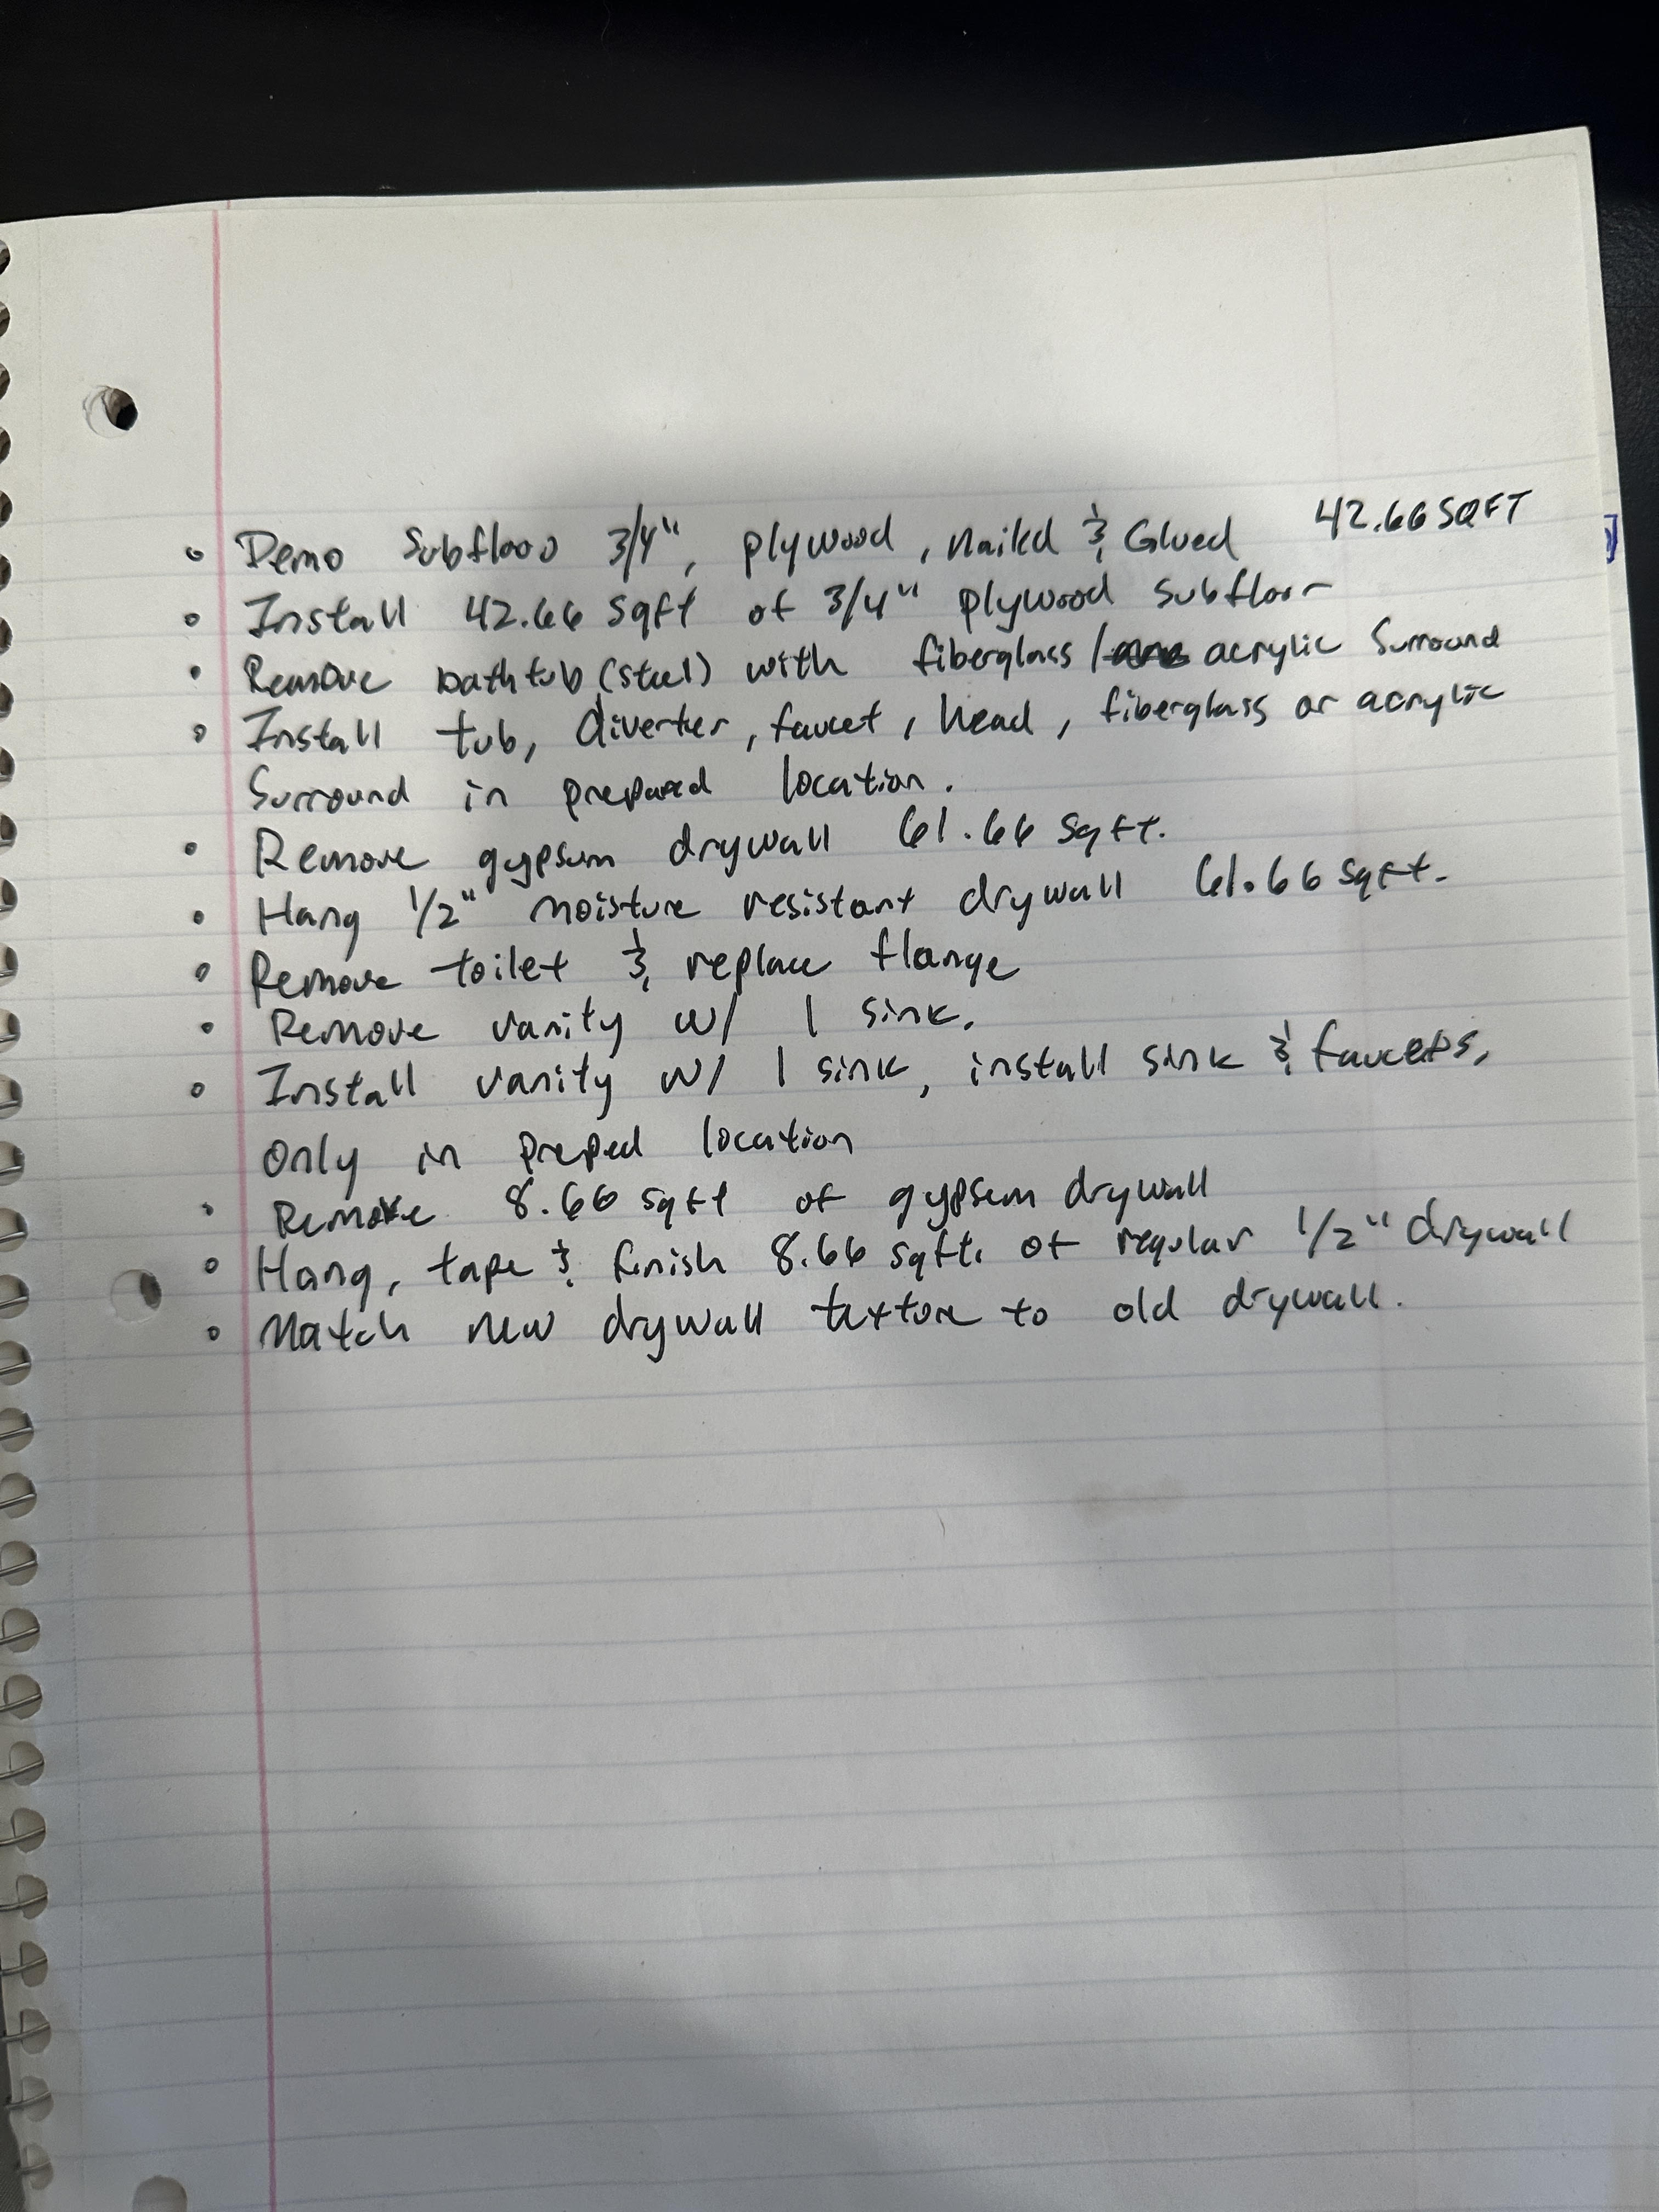 • Demo Subfloor 3/4", plywood, nailed & Glued 42.66 SQFT
• Install 42.66 Sqft of 3/4" plywood subfloor
• Remove bathtub (steel) with fiberglass / acrylic Surround
• Install tub, diverter, faucet, head, fiberglass or acrylic
Surround in prepared location.
• Remove gypsum drywall 61.66 Sqft.
• Hang 1/2" moisture resistant drywall 61.66 Sqft.
• Remove toilet & replace flange
• Remove vanity w/ 1 sink.
• Install vanity w/ 1 sink, install sink & faucets,
Only in preped location
• Remove 8.66 sqft of gypsum drywall
• Hang, tape & finish 8.66 sqft. of regular 1/2" drywall
• Match new drywall texture to old drywall.